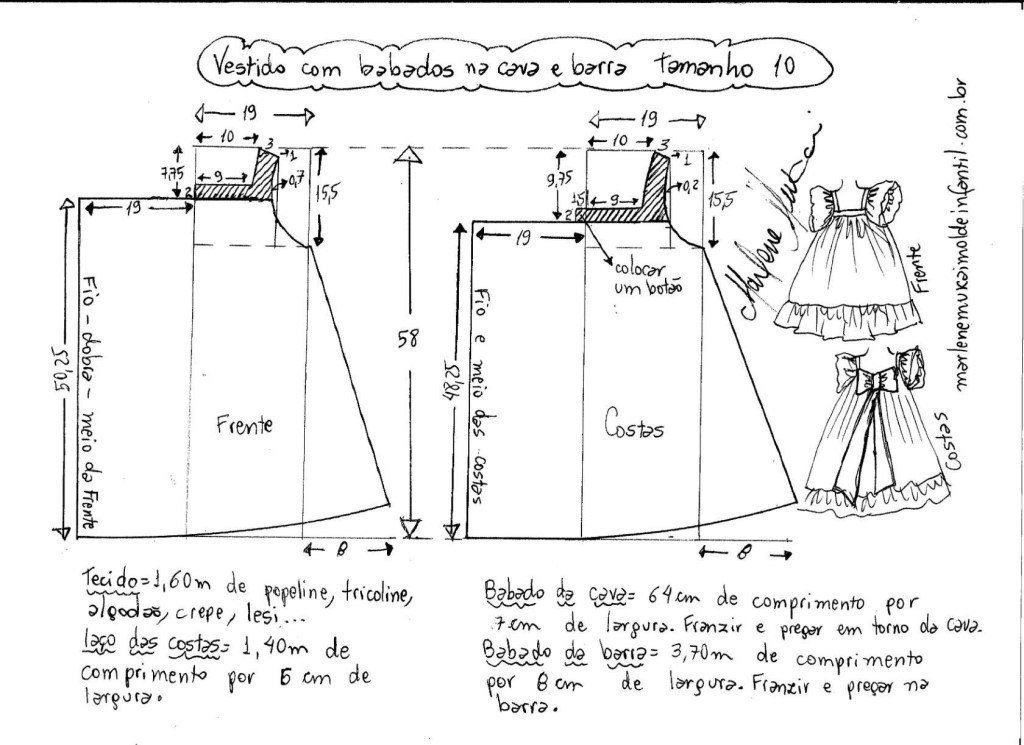 Vestido com babados na cava e barra tamanho 10
19
10
3
1
7,75
9
2
0,7
15,5
19
Fio - dobra - meio da Frente
52,05
Frente
8
58
19
10
3
1
9,75
1,5
9
2
0,2
15,5
19
colocar
um botão
Fio e meio das costas
48,25
Costas
8
Marlene Mukai
Frente
Costas
marlenemukaimoldeinfantil.com.br
Tecido=1,60m de popeline, tricoline,
algodão, crepe, lesi...
laço das costas= 1,40m de
comprimento por 6 cm de
largura.
Babado da cava= 64cm de comprimento por
7cm de largura. Franzir e pregar em torno da cava.
Babado da barra= 3,70m de comprimento
por 8cm de largura. Franzir e pregar na
barra.